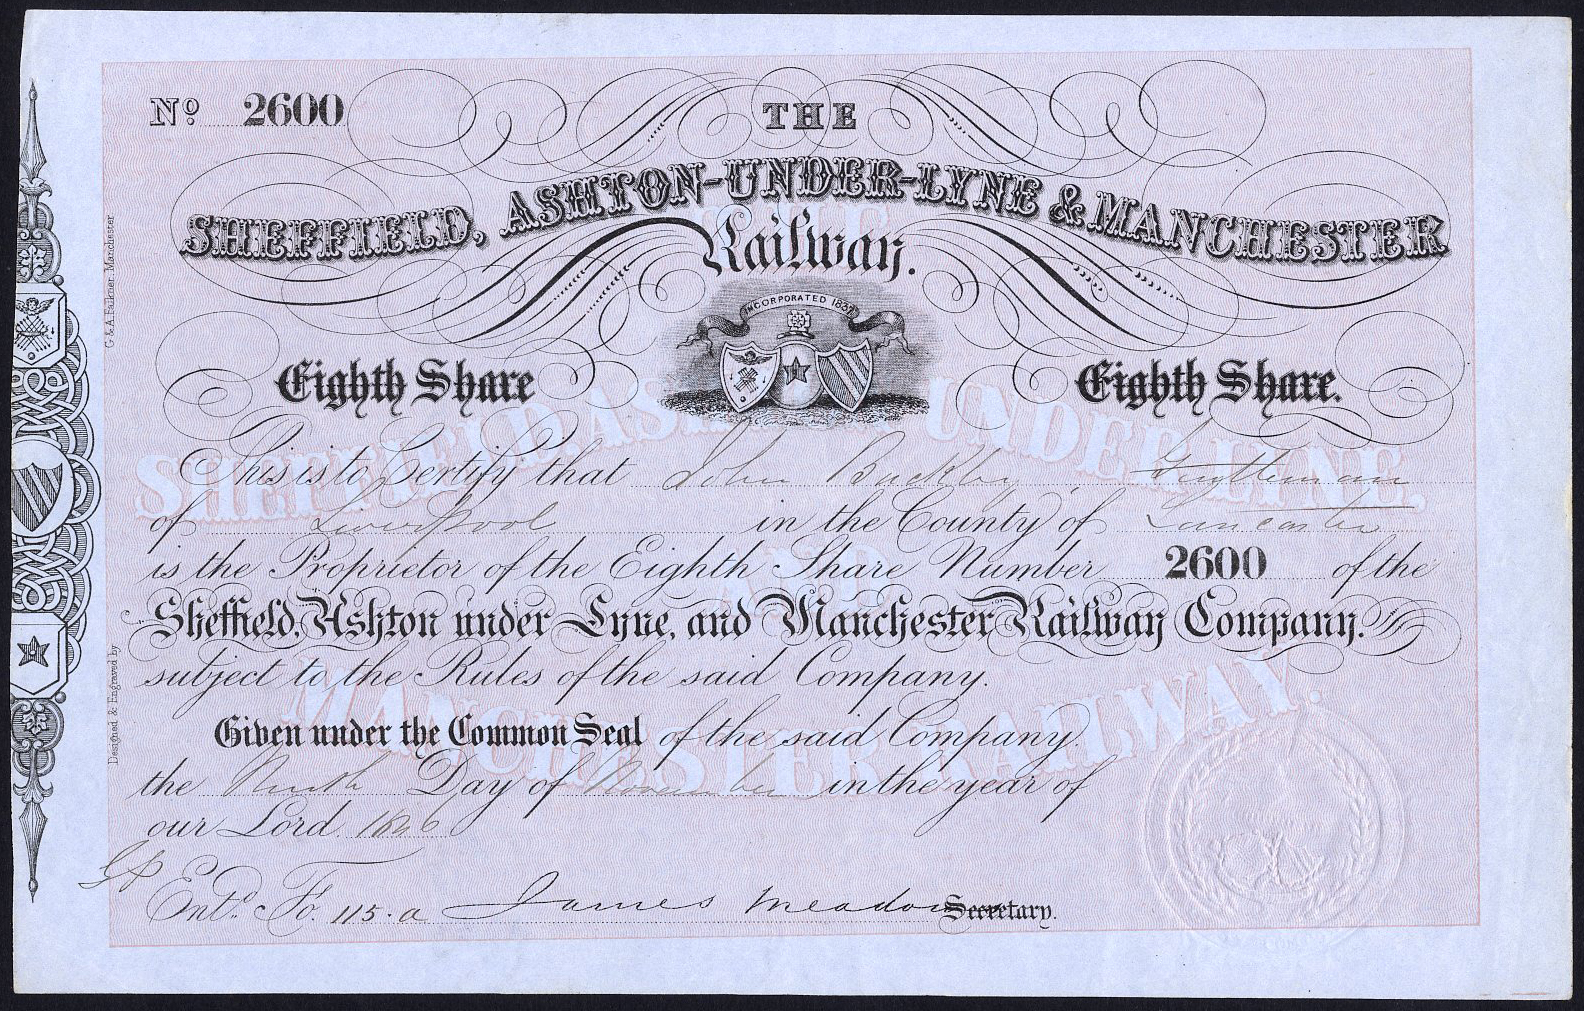 No. 2600
THE
SHEFFIELD, ASHTON-UNDER-LYNE & MANCHESTER
Railway.
INCORPORATED 1837
Eighth Share
Eighth Share.
This is to Certify that John Buckley, Gentleman
of Liverpool in the County of Lancaster
is the Proprietor of the Eighth Share Number 2600 of the
Sheffield, Ashton under Lyne, and Manchester Railway Company.
subject to the Rules of the said Company.
Given under the Common Seal of the said Company.
the Ninth Day of November in the year of
our Lord 1846
Entd. Fo. 115.a James Meadows Secretary.
Designed & Engraved by G & A. Falkner, Manchester
THE
SHEFFIELD, ASHTON UNDER LYNE,
AND
MANCHESTER RAILWAY.